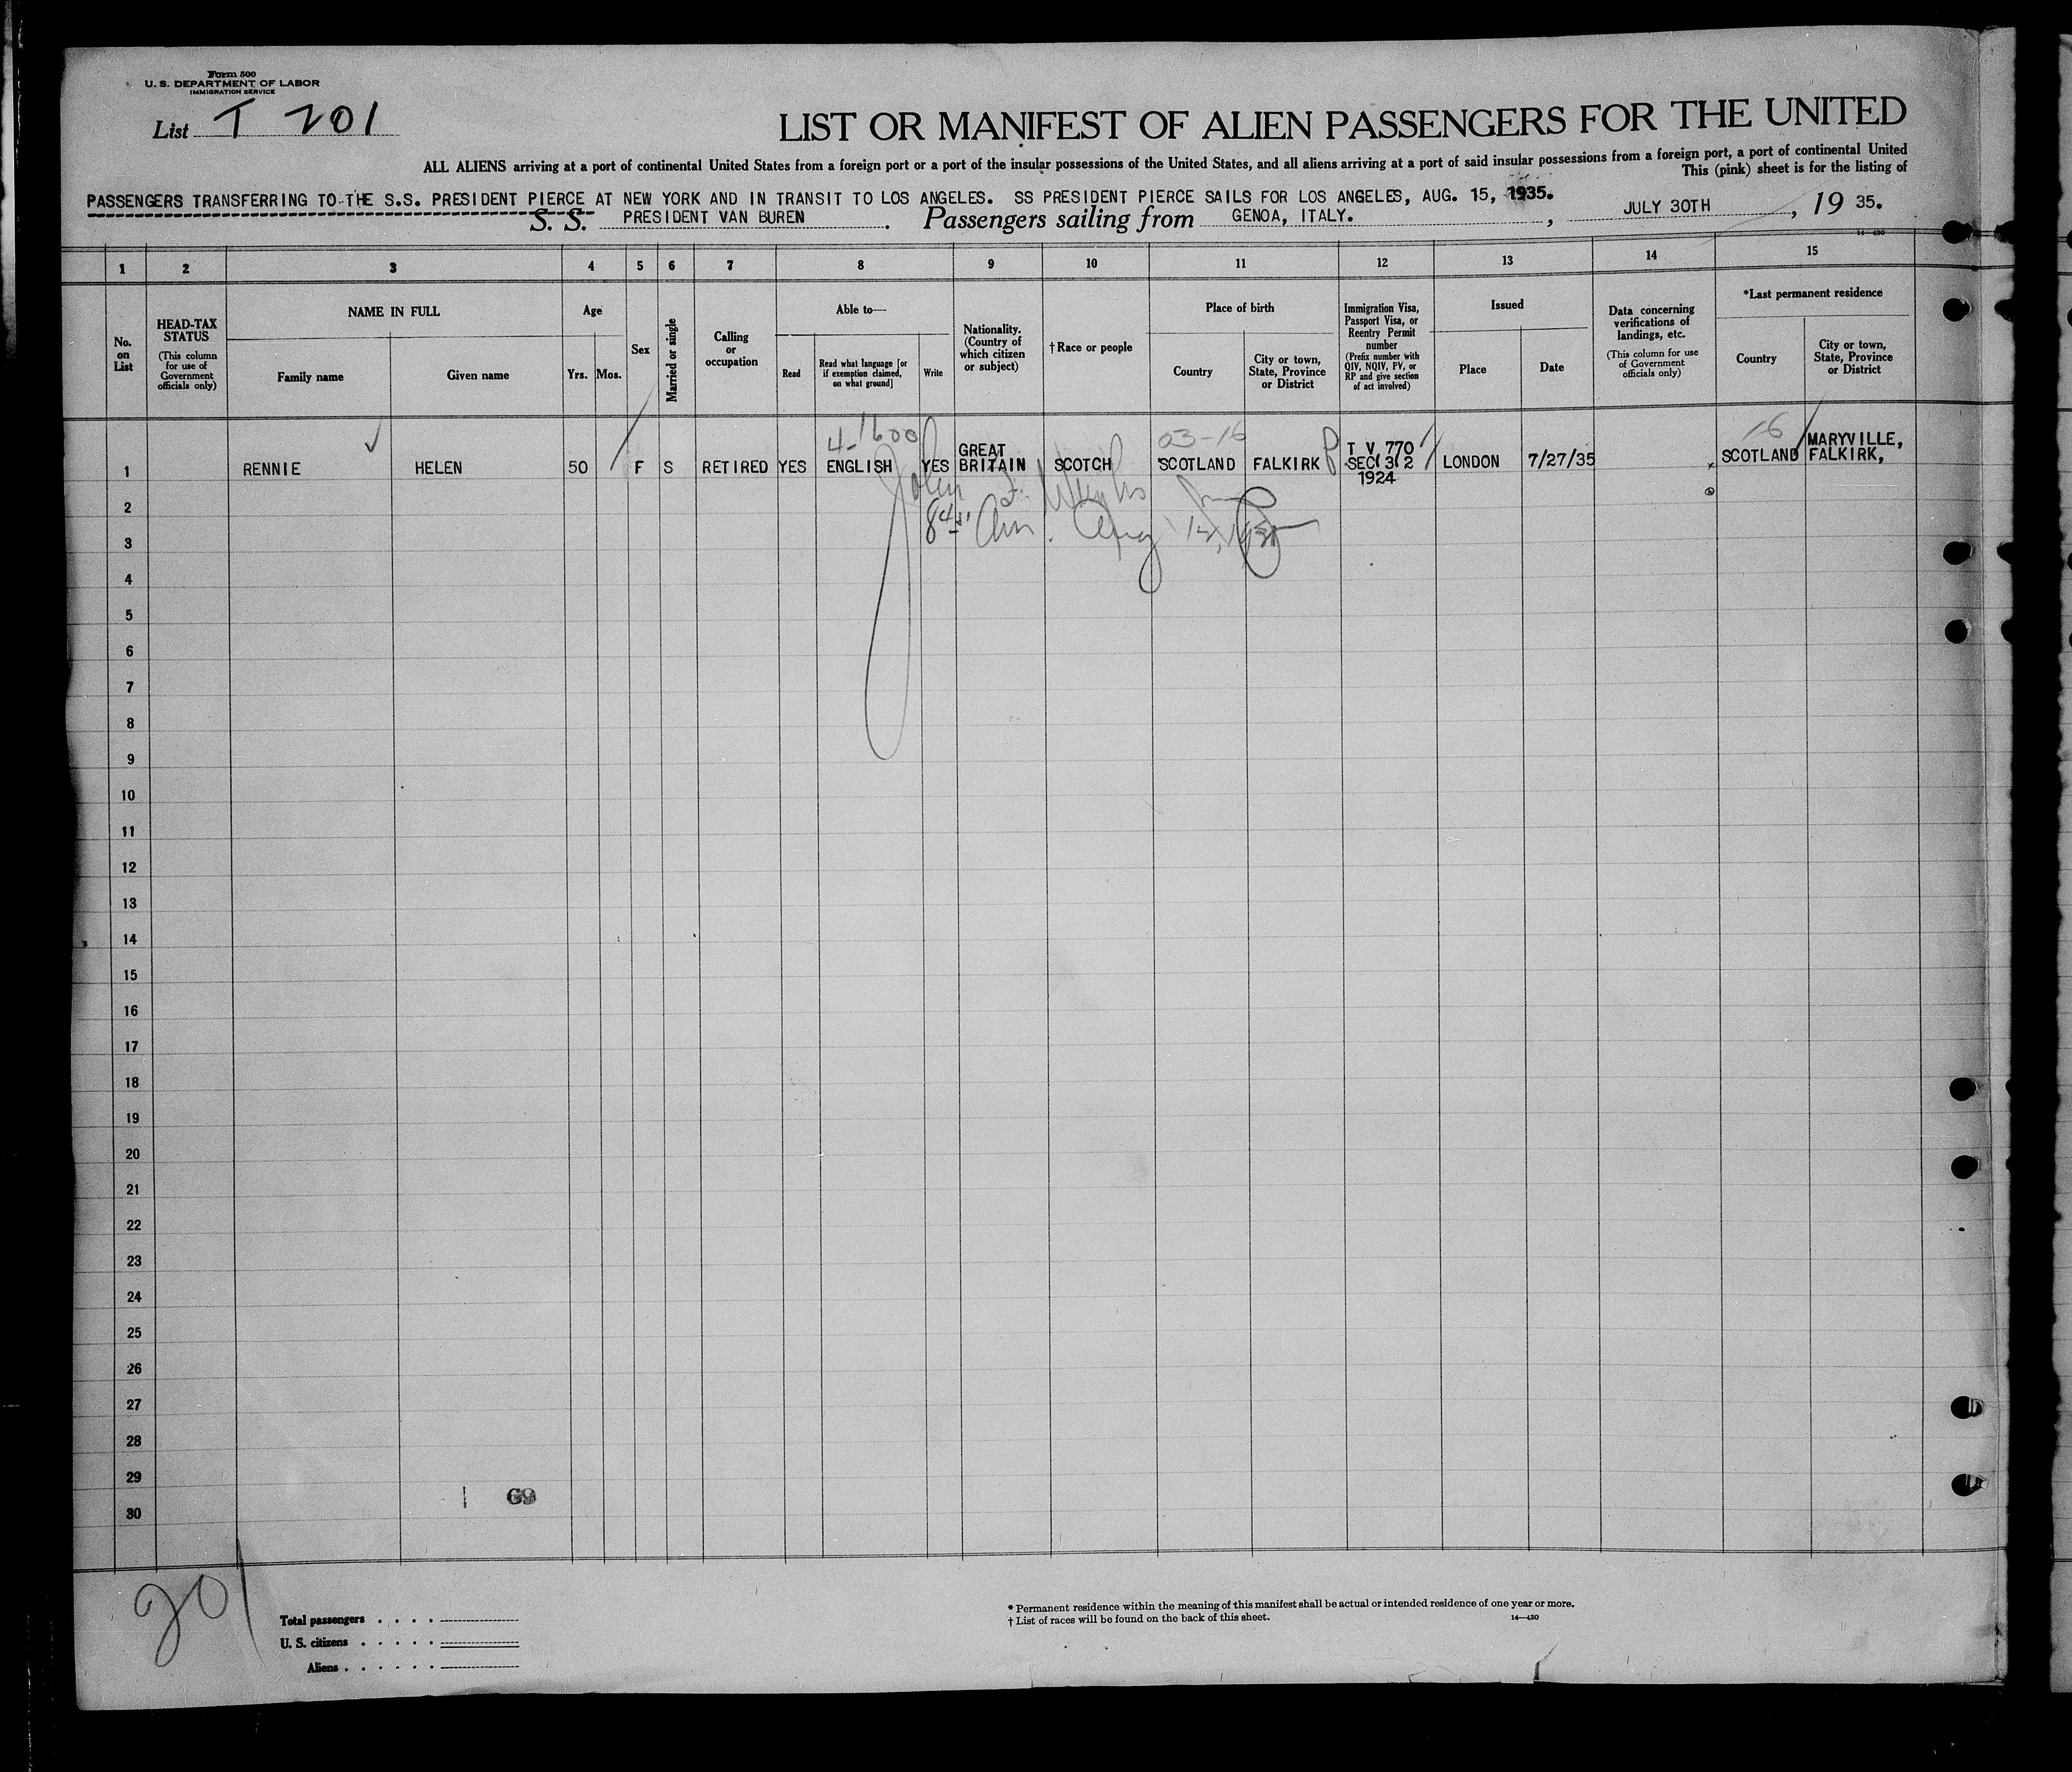 Form 500
U. S. DEPARTMENT OF LABOR
IMMIGRATION SERVICE
List T 201
LIST OR MANIFEST OF ALIEN PASSENGERS FOR THE UNITED
ALL ALIENS arriving at a port of continental United States from a foreign port or a port of the insular possessions of the United States, and all aliens arriving at a port of said insular possessions from a foreign port, a port of continental United
This (pink) sheet is for the listing of
PASSENGERS TRANSFERRING TO THE S.S. PRESIDENT PIERCE AT NEW YORK AND IN TRANSIT TO LOS ANGELES. SS PRESIDENT PIERCE SAILS FOR LOS ANGELES, AUG. 15, 1935.
S. S. PRESIDENT VAN BUREN . Passengers sailing from GENOA, ITALY. , JULY 30TH , 19 35.
14-430
1 2 3 4 5 6 7 8 9 10 11 12 13 14 15
No. on List
HEAD-TAX STATUS
(This column for use of Government officials only)
NAME IN FULL
Family name
Given name
Age
Yrs. Mos.
Sex
Married or single
Calling or occupation
Able to—
Read
Read what language [or if exemption claimed, on what ground]
Write
Nationality. (Country of which citizen or subject)
† Race or people
Place of birth
Country
City or town, State, Province or District
Immigration Visa, Passport Visa, or Reentry Permit number
(Prefix number with QIV, NQIV, PV, or RP and give section of act involved)
Issued
Place
Date
Data concerning verifications of landings, etc.
(This column for use of Government officials only)
*Last permanent residence
Country
City or town, State, Province or District
4-1600 03-16 16
1 RENNIE HELEN 50 F S RETIRED YES ENGLISH YES GREAT BRITAIN SCOTCH SCOTLAND FALKIRK T V 770 SEC(3(2 1924 LONDON 7/27/35 SCOTLAND MARYVILLE, FALKIRK,
John
2
3
4
5
6
7
8
9
10
11
12
13
14
15
16
17
18
19
20
21
22
23
24
25
26
27
28
29
30
69
201
Total passengers . . . .
U. S. citizens . . . . .
Aliens . . . . . .
* Permanent residence within the meaning of this manifest shall be actual or intended residence of one year or more.
† List of races will be found on the back of this sheet.
14-430